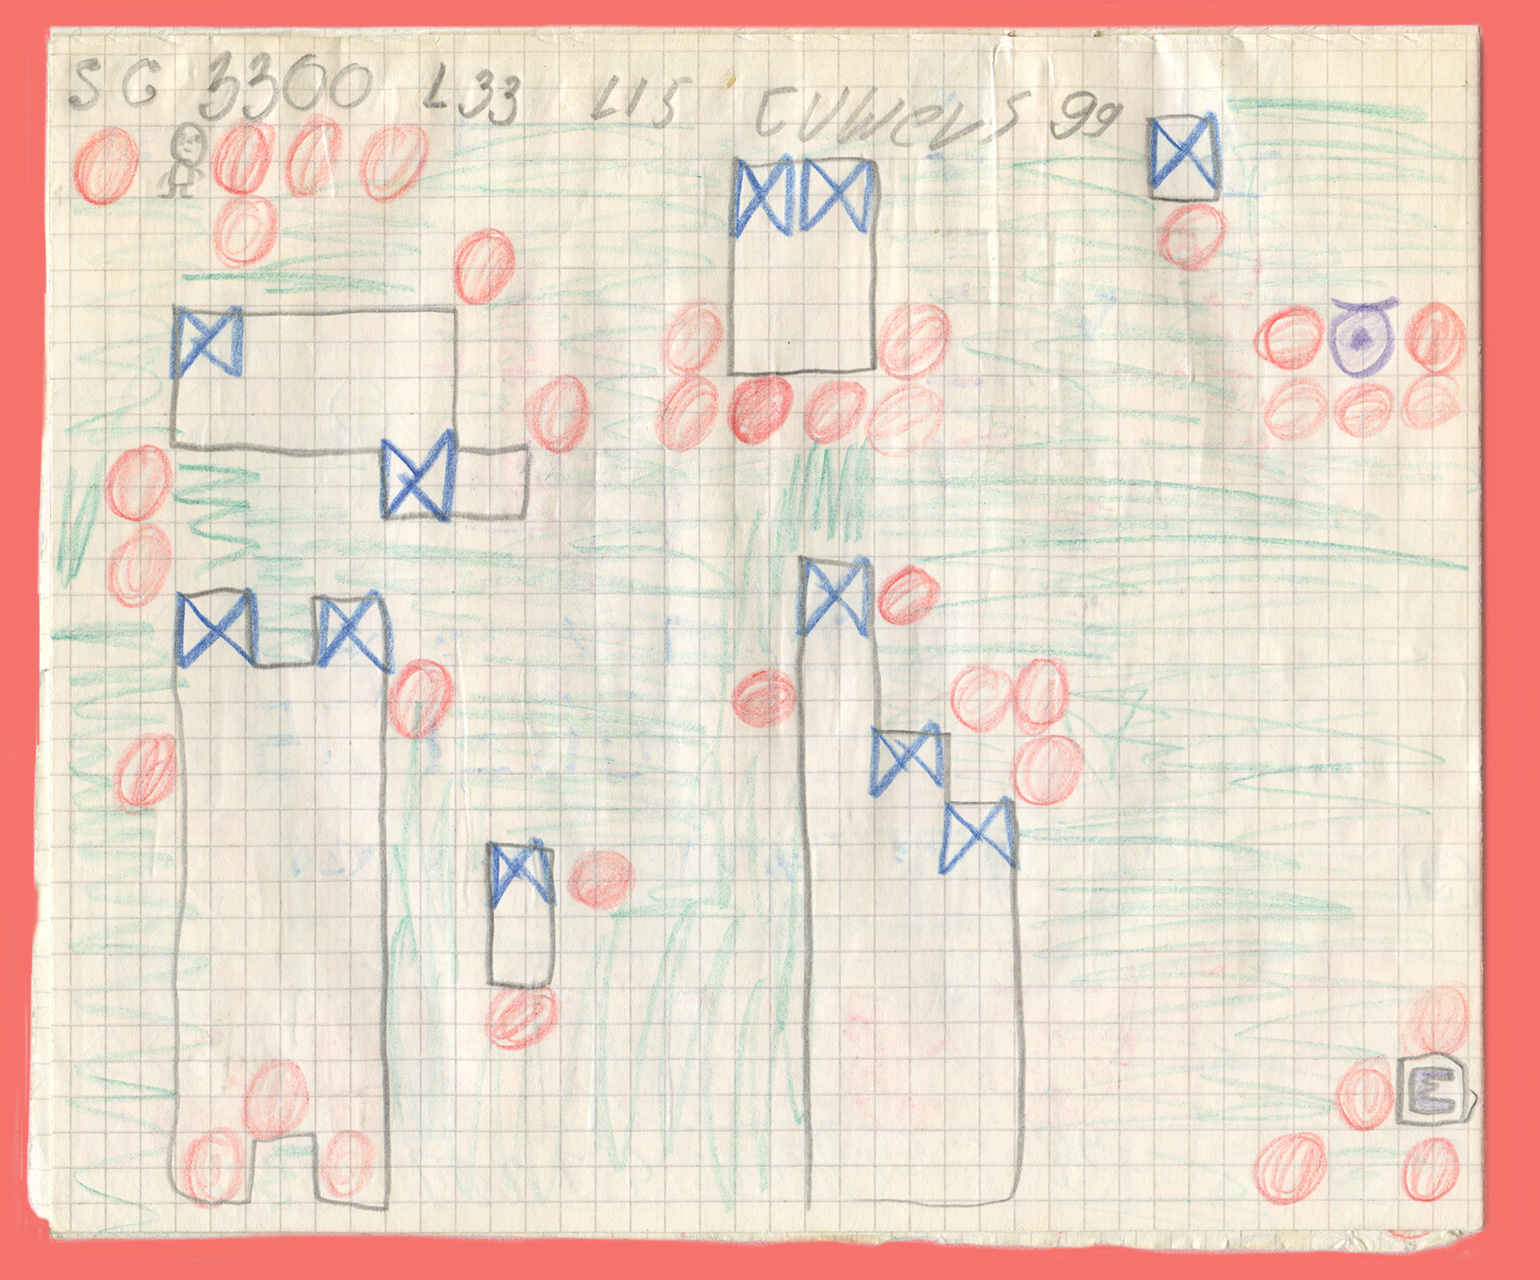 SG 3300 L33 L15 EUWEVS 99
E